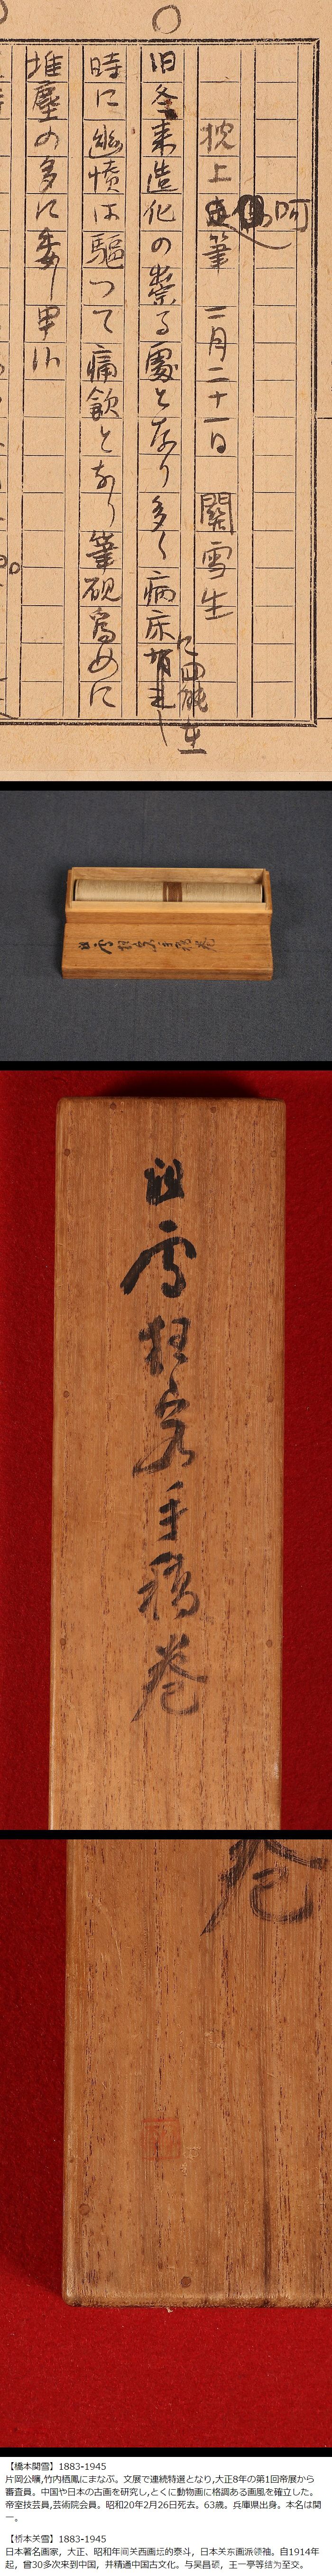 枕上呵筆　二月二十一日　關雪生
旧冬来造化の弊る處となり多く病床
時に幽憤は驅つて痛飲となり筆硯為めに
堆塵の多に委し畢ぬ
雪狂客手稿巻
【橋本関雪】1883-1945
片岡公曠,竹内栖鳳にまなぶ。文展で連続特選となり,大正8年の第1回帝展から
審査員。中国や日本の古画を研究し,とくに動物画に格調ある画風を確立した。
帝室技芸員,芸術院会員。昭和20年2月26日死去。63歳。兵庫県出身。本名は関
一。
【桥本关雪】1883-1945
日本著名画家，大正、昭和年间关西画坛的泰斗，日本关东画派领袖。自1914年
起，曾30多次来到中国，并精通中国古文化。与吴昌硕，王一亭等结为至交。